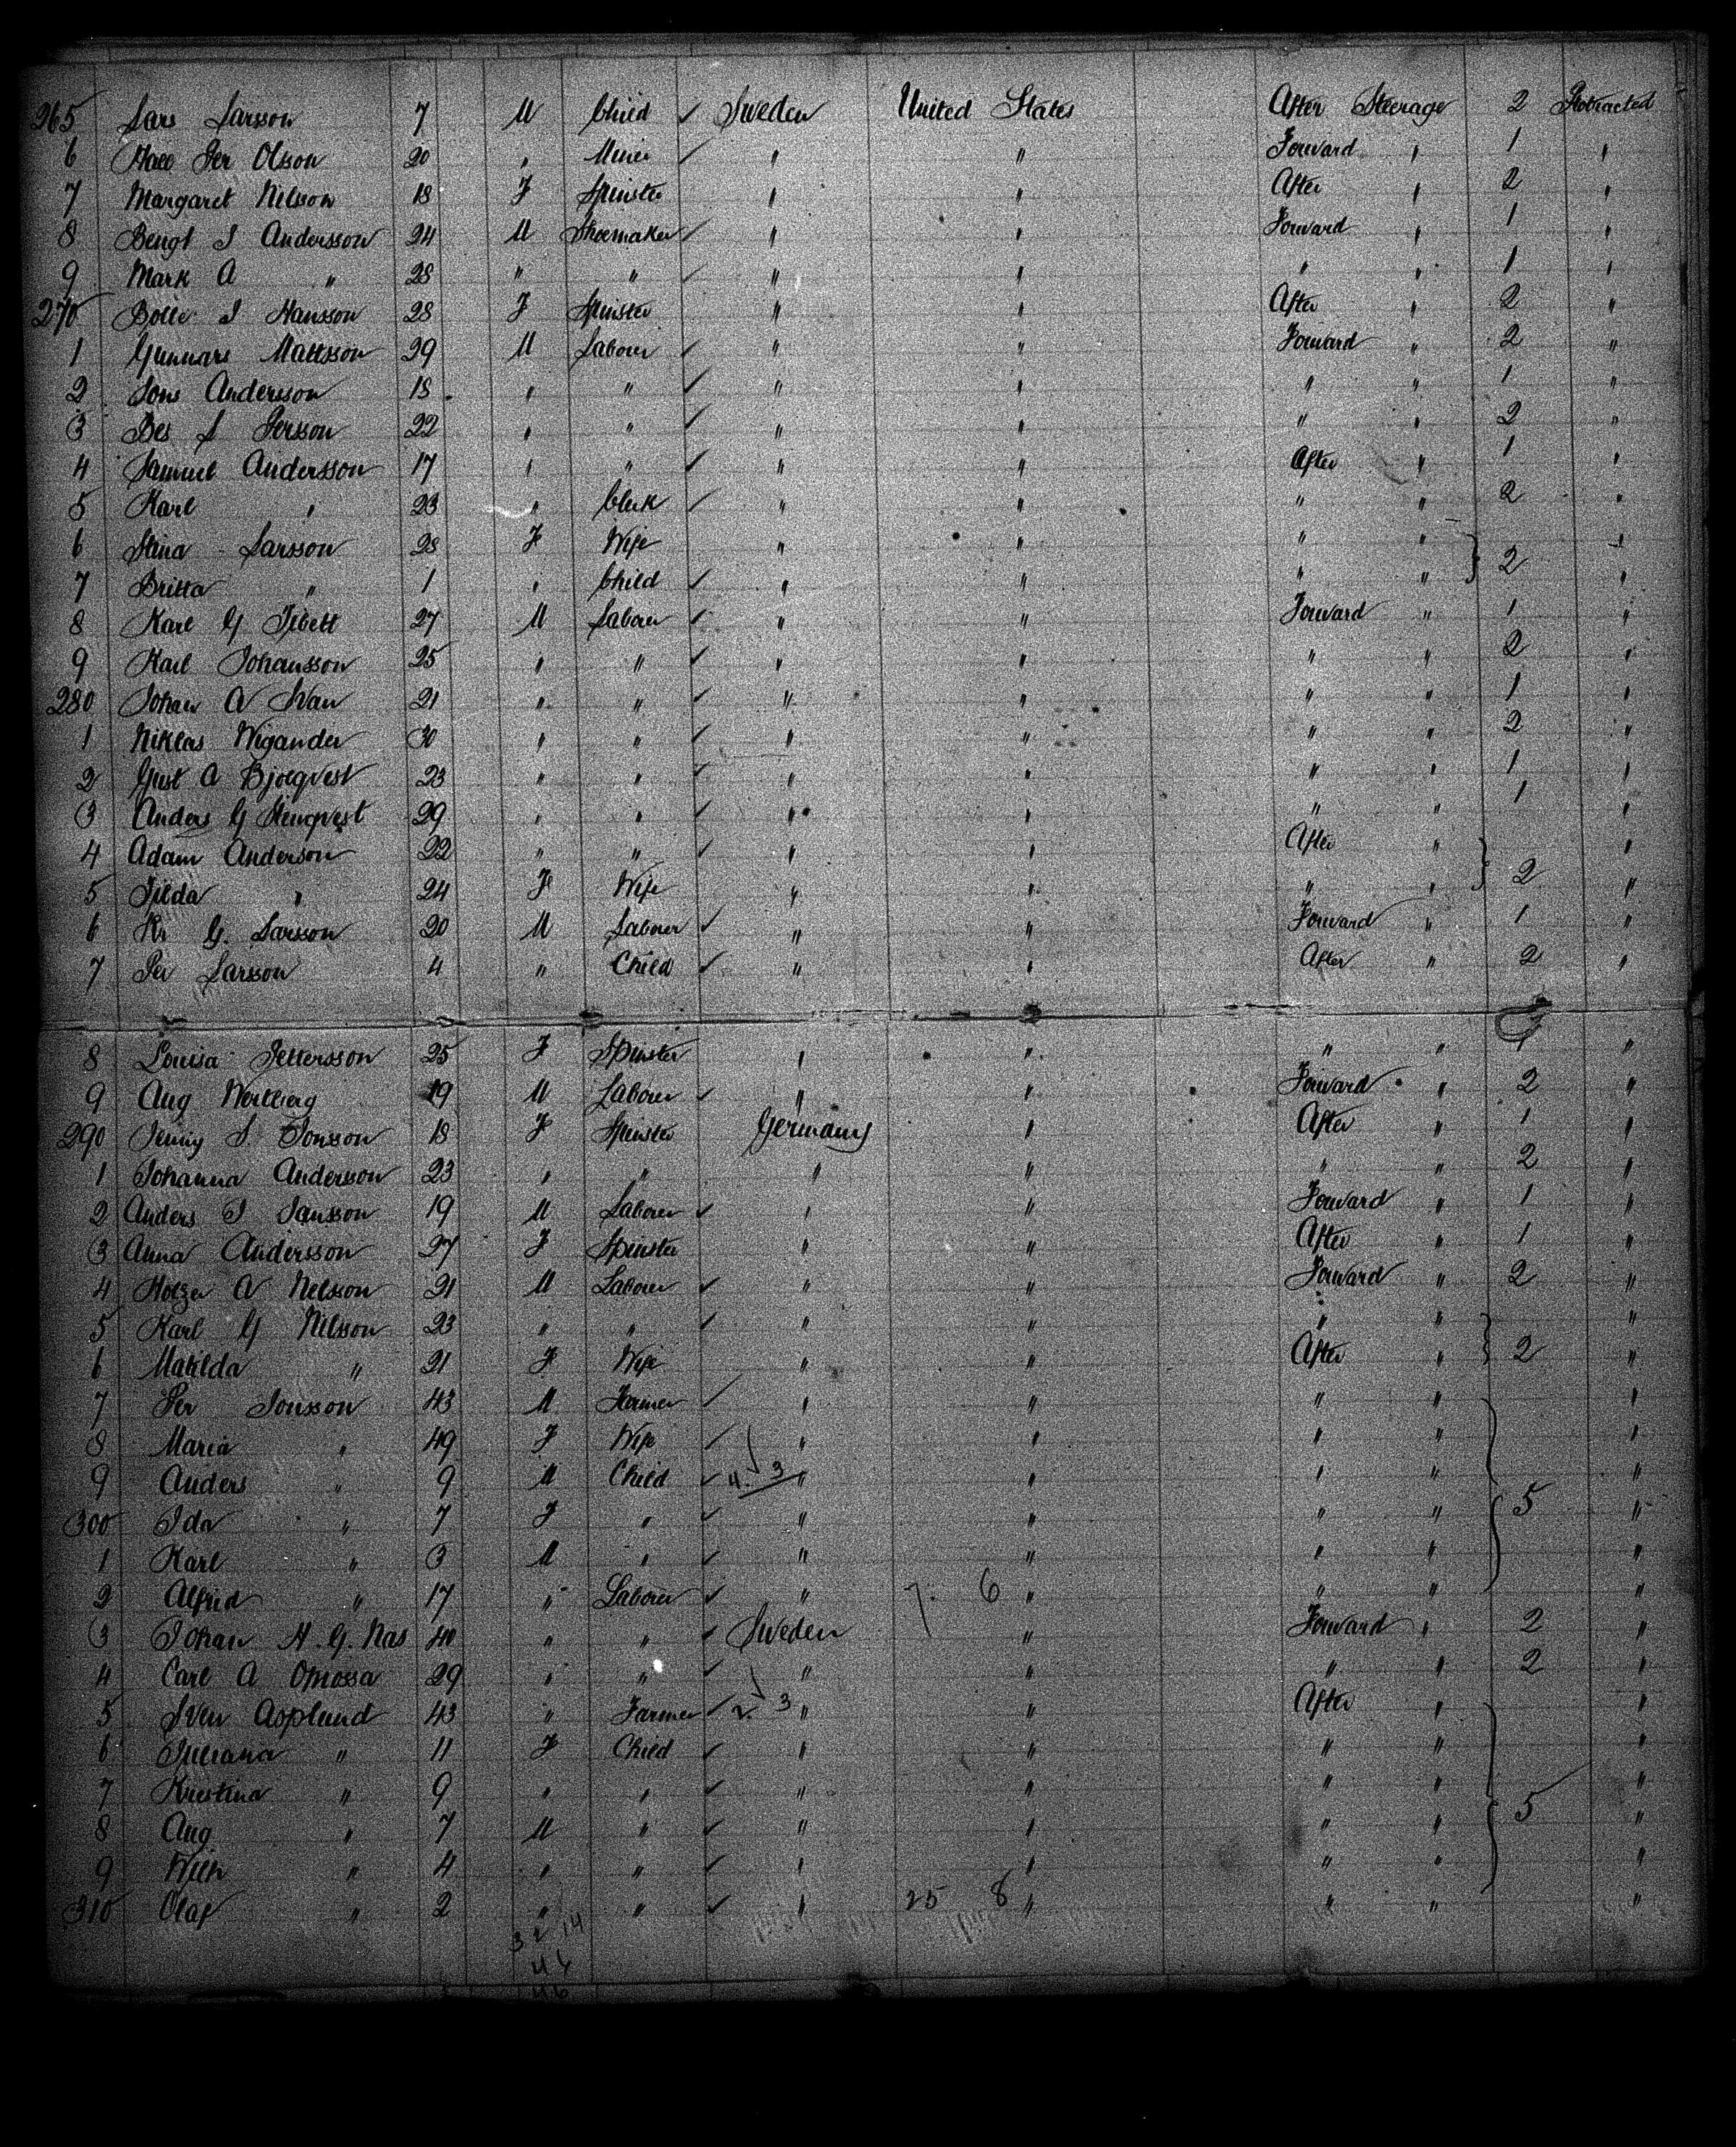 265 Lars Larsson 7 M Child ✓ Sweden United States After Steerage 2 Protracted
6 Per Olsson 20 " Miner ✓ " " Forward " 1 "
7 Margaret Nilsson 18 F Spinster " " After " 2 "
8 Bengt J Andersson 24 M Shoemaker ✓ " " Forward " 1 "
9 Mark A " 28 " " ✓ " " " " 1 "
270 J Hansson 28 F Spinster " " After " 2 "
1 Gunnars Mattsson 29 M Laborer ✓ " " Forward " 2 "
2 Jons Andersson 18 " " ✓ " " " " 1 "
3 Persson 22 " " ✓ " " " " 2 "
4 Samuel Andersson 17 " " ✓ " " After " 1 "
5 Karl " 23 " Clerk ✓ " " " " 2 "
6 Stina Larsson 28 F Wife " " " " "
7 Britta " 1 " Child ✓ " " " " 2 "
8 Karl G 27 M Laborer ✓ " " Forward " 1 "
9 Karl Johansson 25 " " ✓ " " " " 2 "
280 Johan A Svan 21 " " ✓ " " " " 1 "
1 Niklas Wigander 30 " " ✓ " " " " 2 "
2 Gust A 23 " " ✓ " " " " 1 "
3 Anders G 29 " " ✓ " " " " 1 "
4 Adam Anderson 22 " " ✓ " " After " "
5 Tilda " 24 F Wife " " " " 2 "
6 G. Larsson 20 M Laborer ✓ " " Forward " 1 "
7 Per Larsson 4 " Child ✓ " " After " 2 "
8 Louisa Pettersson 25 F Spinster " " " " 1 "
9 Aug 19 M Laborer ✓ " " Forward " 2 "
290 Jenny S Jonsson 18 F Spinster Germany " After " 1 "
1 Johanna Andersson 23 " " " " " " 2 "
2 Anders J Jansson 19 M Laborer ✓ " " Forward " 1 "
3 Anna Andersson 27 F Spinster " " After " 1 "
4 A Nelsson 21 M Laborer ✓ " " Forward " 2 "
5 Karl G Nilsson 23 " " ✓ " " " " "
6 Matilda " 21 F Wife " " After " 2 "
7 Per Jonsson 43 M Farmer ✓ " " " " "
8 Maria " 49 F Wife ✓ " " " " "
9 Anders " 9 M Child ✓ 4. 3 " " " " "
300 Ida " 7 F " ✓ " " " " 5 "
1 Karl " 3 M " ✓ " " " " "
2 Alfrid " 17 " Laborer ✓ " 7. 6 " " " "
3 Johan H. G. Nas 40 " " ✓ Sweden " Forward " 2 "
4 Carl A Omossa 29 " " ✓ " " " " 2 "
5 Sven Asplund 43 " Farmer ✓ 2. 3 " " After " "
6 Juliana " 11 F Child ✓ " " " " "
7 Kristina " 9 " " ✓ " " " " "
8 Aug " 7 M " ✓ " " " " 5 "
9 Wilh " 4 " " ✓ " " " " "
310 Olaf " 2 " " ✓ " 25 8 " " " "
32 14
46